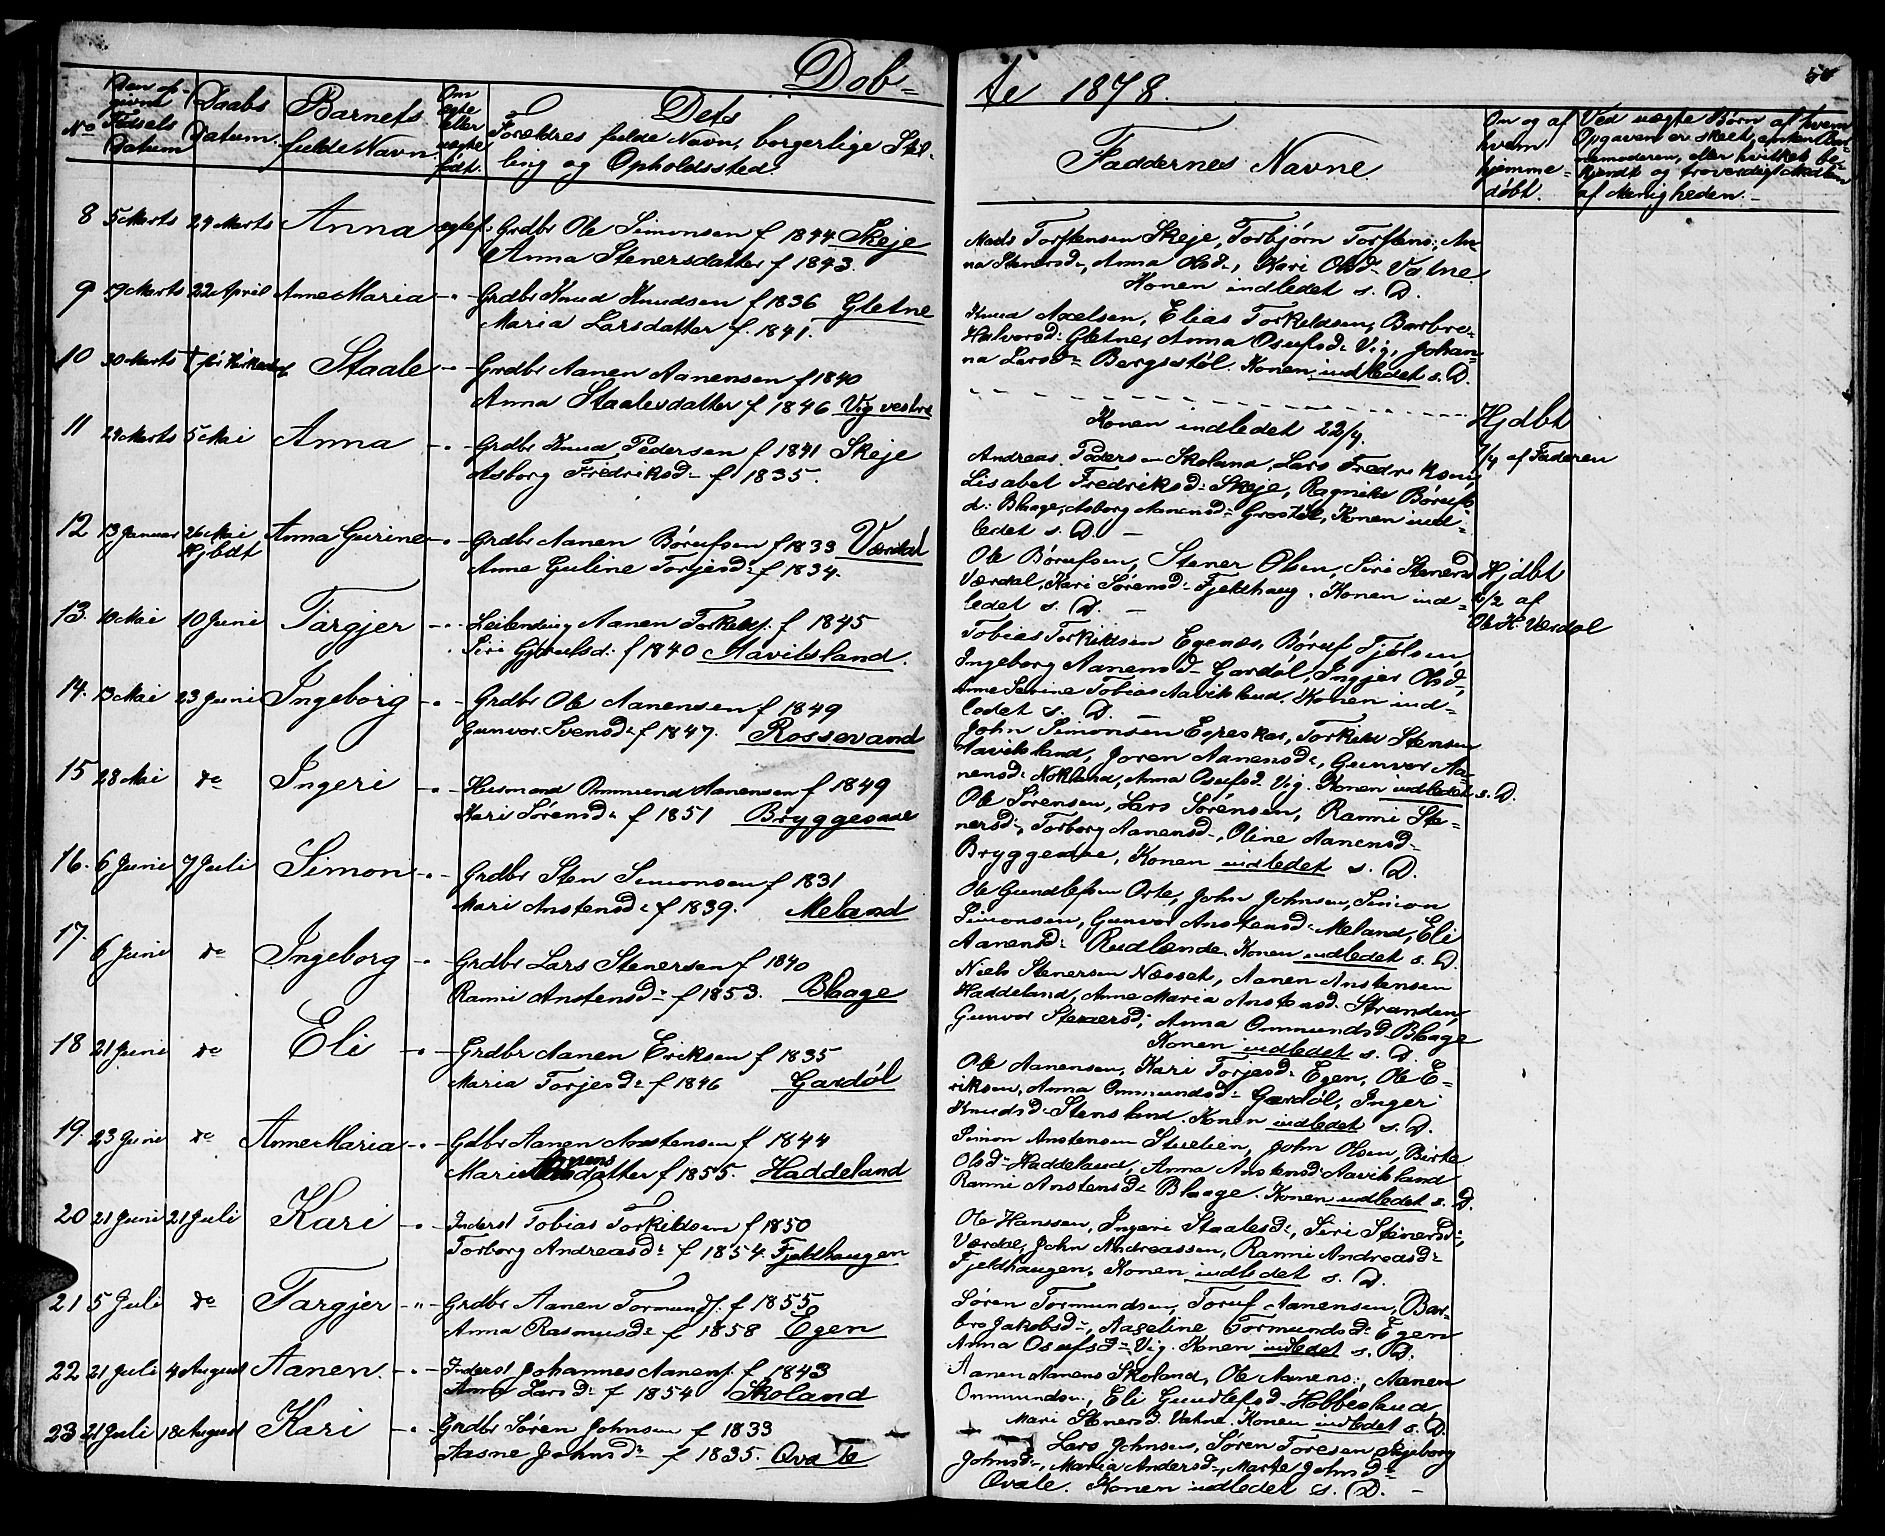 Døb-
te 1878.
50
No
Den op-
givne
Fødsels
Datum
Daabs
Datum.
Barnets
fulde Navn
Om
egte
eller
uægte
født.
Dets
Forældres fulde Navn, borgerlige Stil-
ling og Opholdssted.
Faddernes Navne
Om og af
hvem
hjemme-
døbt.
Ved uægte Børn af hvem
Opgaven er skeet, enten Bar-
nemoderen, eller hvilket be-
kjendt og troværdigt Medlem
af Menigheden.-
8 5 Marts 24 Marts Anna egtef. Grdbr Ole Simonsen f 1844 Skeje
Anna Stenersdatter f 1843.
Mads Torstensen Skeje, Torbjørn Torstens:, An-
na Stenersd-, Anna Olsd-, Kari Olsd- Vatne.
Konen indledet s. D.
9 19 Marts 22 April Anne Maria -"- Grdbr Knud Knudsen f 1836 Gletne
Maria Larsdatter f. 1841.
Knud Axelsen, Elias Torkildsen, Barbro-
Halvorsd: Gletne, Anna Osufsd- Vig, Johan-
na Larsd- Bergsstøl. Konen indledet s. D.
10 30 Marts † før Staale -"- Grdbr Aanen Aanensen f 1840
Anna Staalesdatter f 1846 Vig vestre
Konen indledet 22/4.
Hjdbt
1/4 af Faderen
11 24 Marts 5 Mai Anna -"- Grdbr Knud Pedersen f 1841 Skeje
Asborg Fredriksd- f 1835.
Andreas Pedersen Skoland, Lars Fredriksen,
Lisabet Fredriksd- Skeje, Ragnild Børufs
d: Blaage, Asborg Aanensd- Grostøl, Konen ind-
ledet s. D. -
12 13 Januar 26 Mai Anna Gurine -"- Grdbr Aanen Børufsen f 1833 Værdal
Hjbdt
Anne Guline Torjesd- f 1834.
Ole Børufsen, Stener Olsen, Siri Stenersd
Værdal, Kari Sørensd- Fjeldhaug. Konen ind-
ledet s. D. -
Hjdbt
/2 af
Ole K. Værdal
13. 10 Mai 10 Juni Targjer -"- Leilending Aanen Torkilds. f 1845
Siri Gjerulsd: f 1840 Aavitsland.
Tobias Torkildsen Egenes, Børuf Tjølsen,
Ingeborg Aanensd- Gardøl, Ingjer Olsd-,
Anne Serine Tobias Aavitsland. Konen ind-
ledet s. D. -
14. 13 Mai 23 Juni Ingeborg -"- Grdbr Ole Aanensen f 1849
Gunvor Svensd- f 1847. Rossevand
John Simonsen Espeskar, Torkild Stensen
Aavitsland, Joren Aanensd-, Gunvor Aa-
nensd- Nokland, Anna Osufsd- Vig. Konen indledet s. D.
15 28 Mai do Ingeri -"- Husmand Ommund Aanensen f 1849
Kari Sørensd- f 1851 Bryggesaae
Ole Sørensen, Lars Sørensen, Ranni Ste-
nersd-, Torborg Aanensd-, Oline Aanensd-
Bryggesaae, Konen indledet s. D.
16. 6 Juni 7 Juli Simon -"- Grdbr Sten Simonsen f 1831
Mari Anstensd- f 1839. Meland
Ole Gundlefsen Orte, John Johnsen, Simon
Simonsen, Gunvor Anstensd- Meland, Eli
Aanensd- Rudlende. Konen indledet s. D.
17. 6 Juni do Ingeborg -"- Grdbr Lars Stenersen f 1840
Ranni Anstensd- f 1853. Blaage
Niels Stenersen Næsset, Aanen Anstensen
Haddeland, Anne Maria Anstensd- Stranden,
Gunvor Stenersd-, Anna Ommundsd Blaage
Konen indledet s. D.
18 21 Juni do Eli -"- Grdbr Aanen Eriksen f 1835
Maria Torjesd- f 1846 Gardøl
Ole Aanensen, Kari Torjesd- Egen, Ole E-
riksen, Anna Ommundsd- Gardøl, Inger
Knudsd- Stensland. Konen indledet s. D.
19. 23 Juni do Anne Maria -"- Gdbr Aanen Anstensen f 1844
Mari datter f 1855. Haddeland
Simon Anstensen Stuelien, John Olsen, Birte
Olsd- Haddeland, Anna Anstensd- Aavitsland
Ranni Anstensd- Blaage. Konen indledet s. D.
20 21 Juni 21 Juli Kari -"- Inderst Tobias Torkildsen f 1850
Torborg Andreasd- f 1854. Fjeldhaugen
Ole Hanssen, Ingeri Staalesd-, Siri Stenersd-,
Værdal, John Andreassen, Ranni Andreasd-
Fjeldhaugen, Konen indledet s. D.
21 5 Juli do Targjer -"- Grdbr Aanen Tormunds. f 1855
Anna Rasmusd- f 1858 Egen
Søren Tormundsen, Toruf Aanensen, Bar-
bro Jakobsd-, Aaseline Tormundsd- Egen
Anna Osufsd- Vig. Konen indledet s. D.
22 21 Juli 4 August Aanen. -"- Inderst Johannes Aanens. f 1843
Anna Larsd- f 1854 Skoland
Aanen Aanens Skoland, Ole Aanens:, Aanen
Ommunds:, Eli Gundlefsd- Hobbesland,
Mari Stenersd. Vatne. Konen indledet s. D.
23 21 Juli 18 August Kari -"- Grdbr Søren Johnsen f 1833
Aasne Johnsd- f 1835. Qvale
Lars Johnsen, Søren Toresen, Ingeborg
Johnsd-, Maria Andersd-, Marte Johnsd-
Qvale. Konen indledet s. D. -